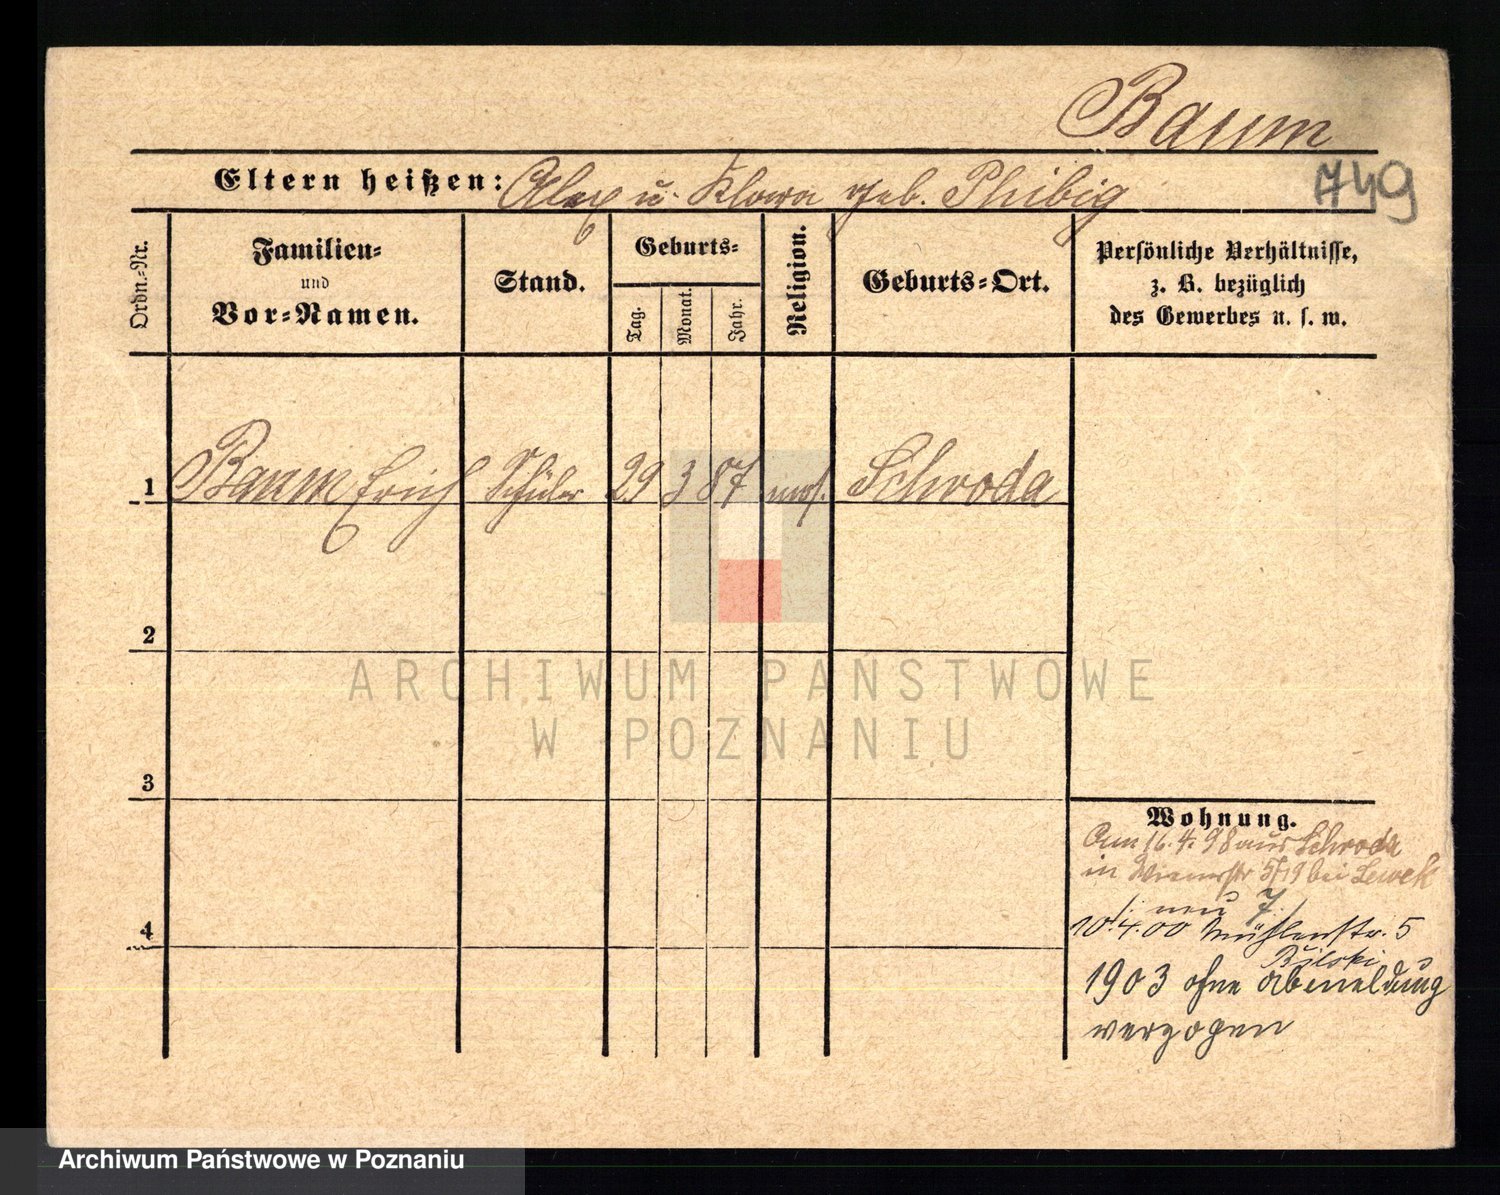 Baum
Eltern heißen: Alex u. Klara geb. Phibig
749
Ordn.-Nr.
Familien-
und
Vor-Namen.
Stand.
Geburts-
Tag.
Monat.
Jahr.
Religion.
Geburts-Ort.
Persönliche Verhältnisse,
z. B. bezüglich
des Gewerbes u. s. w.
1 Baum Erich Schüler 29 3 87 mos. Schroda
2
3
4
Wohnung.
Am 16.4.98 aus Schroda
in Wienerstr 5/19 bei Lewek
/: neu 7 :/
10.4.00 Mühlenstr. 5
Bilski
1903 ohne Abmeldung
verzogen
ARCHIWUM PAŃSTWOWE
W POZNANIU
Archiwum Państwowe w Poznaniu